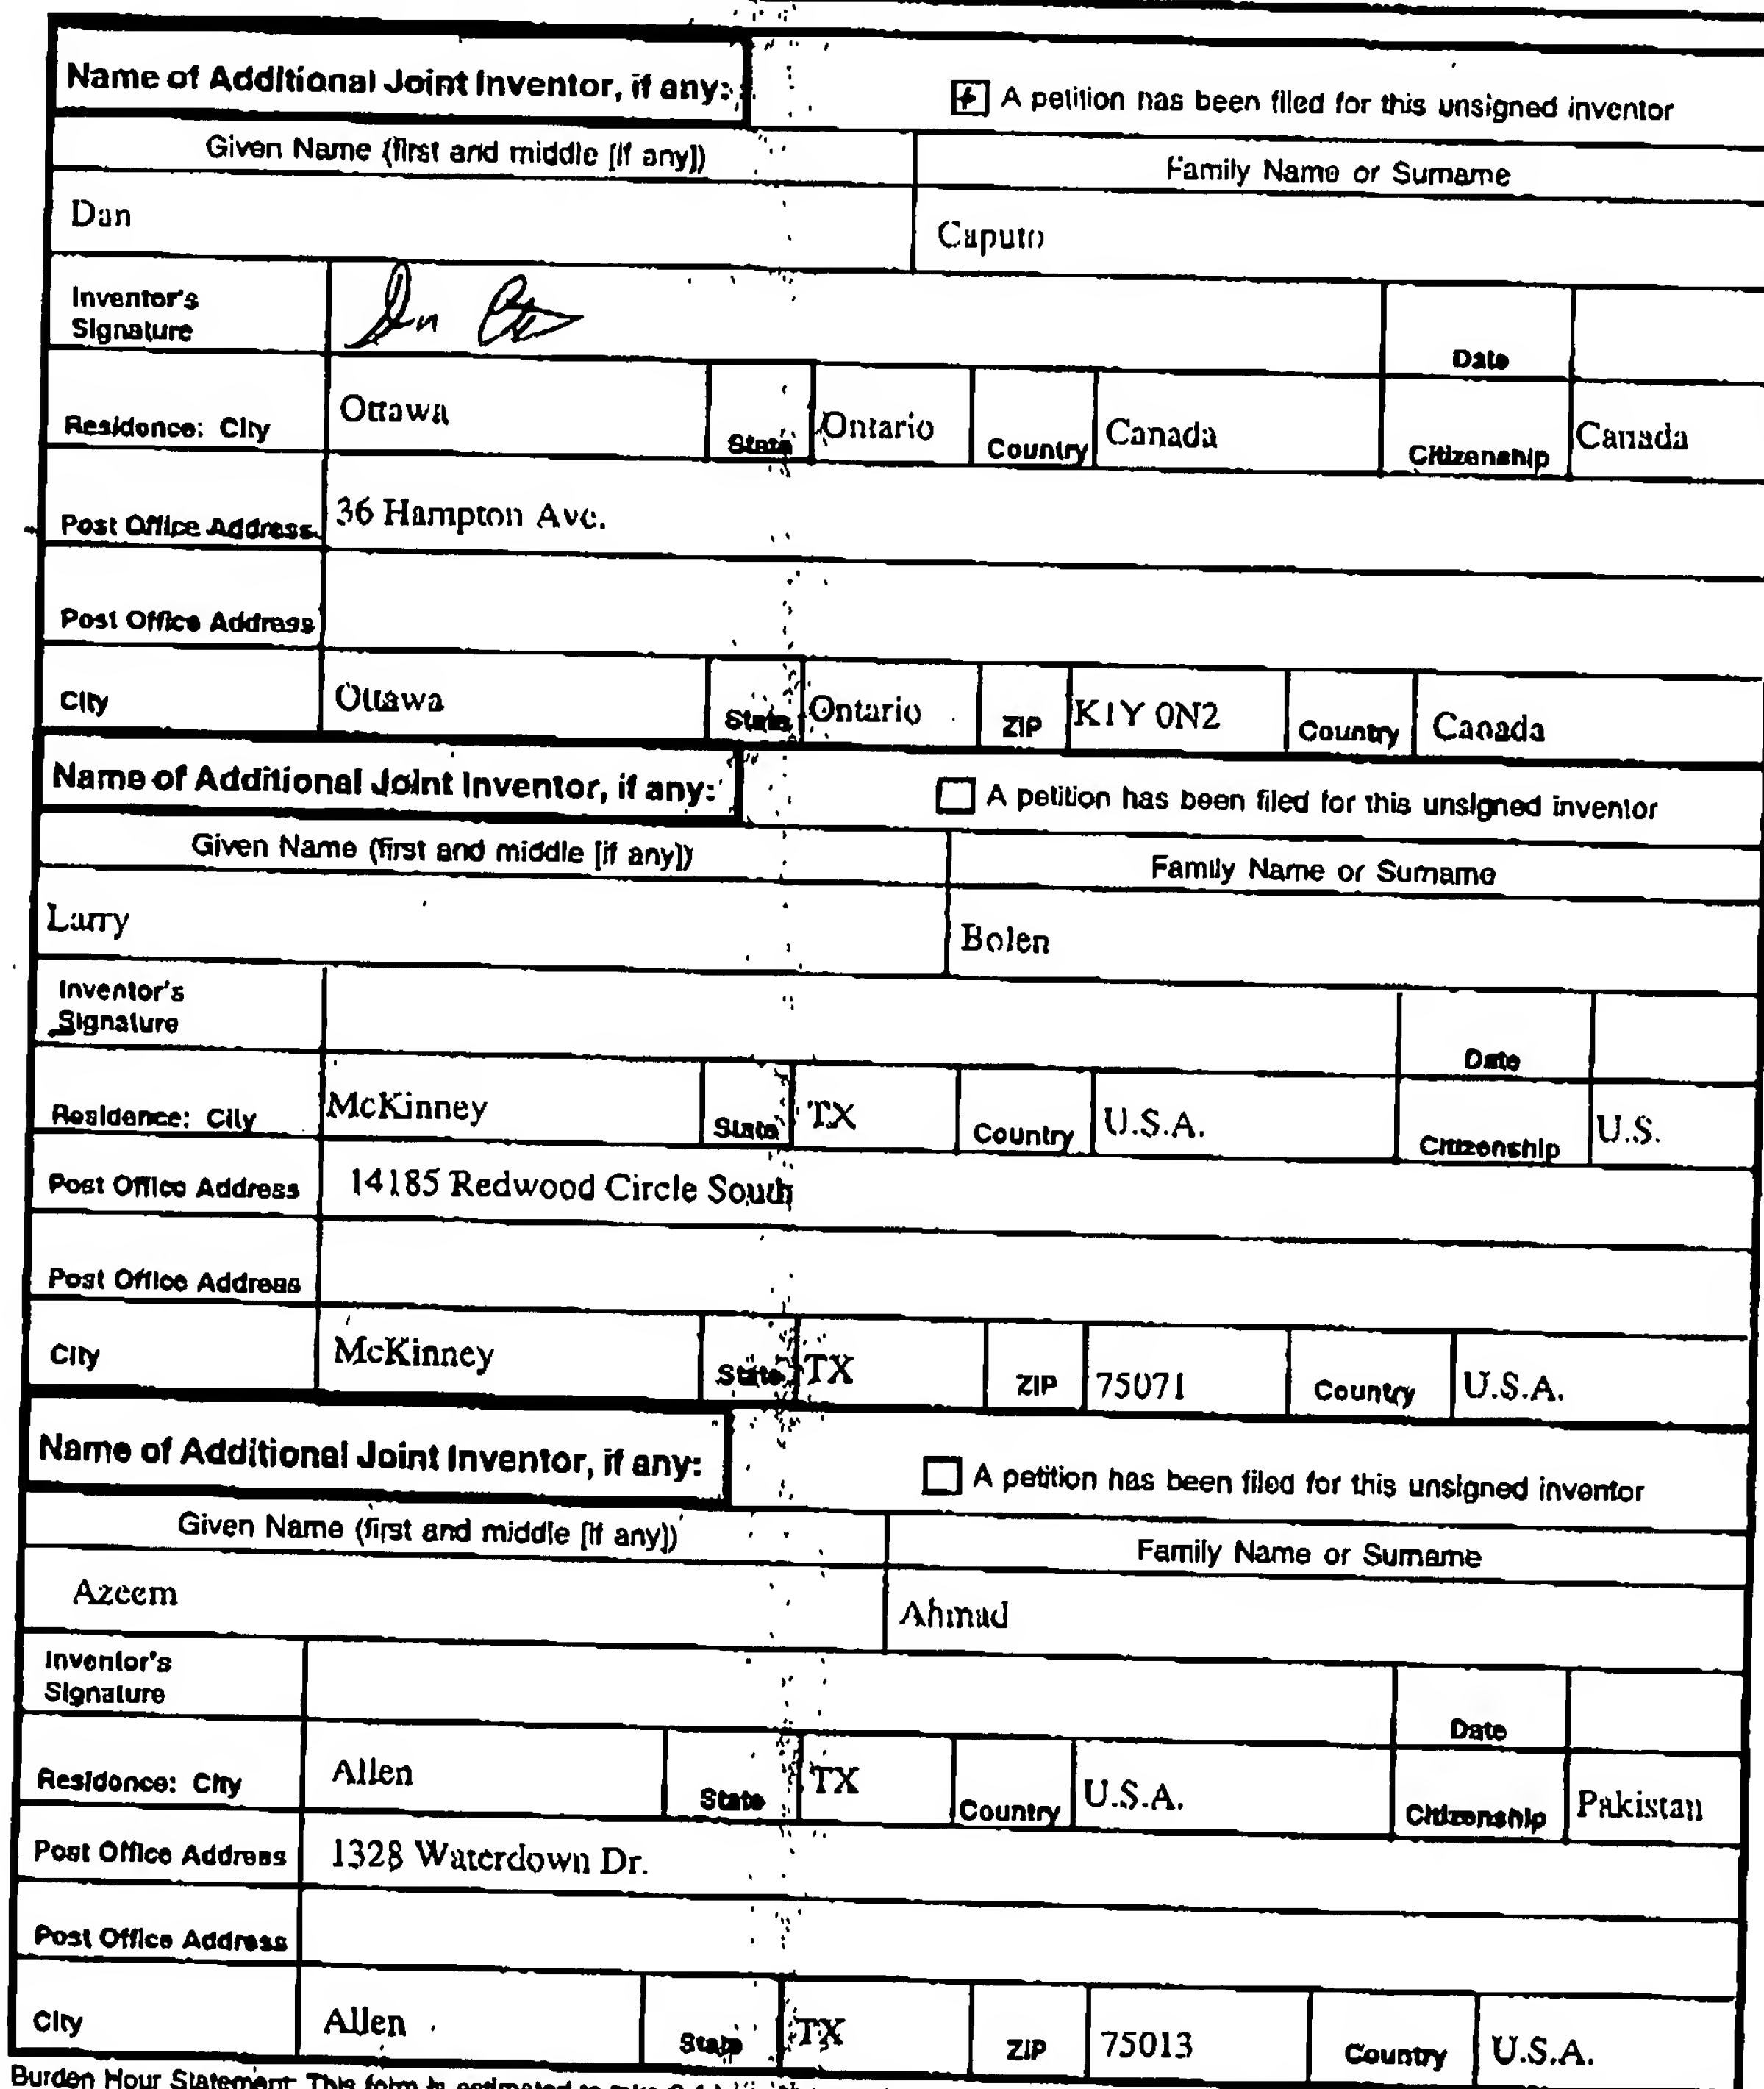 Name of Additional Joint Inventor, if any:
A petition has been filed for this unsigned inventor
Given Name (first and middle [if any])
Family Name or Surname
Dan
Caputo
Inventor's
Signature
Date
Residence: City
Ottawa
State
Ontario
Country
Canada
Citizenship
Canada
Post Office Address
36 Hampton Ave.
Post Office Address
City
Ottawa
State
Ontario
ZIP
K1Y 0N2
Country
Canada
Name of Additional Joint Inventor, if any:
A petition has been filed for this unsigned inventor
Given Name (first and middle [if any])
Family Name or Surname
Larry
Bolen
Inventor's
Signature
Date
Residence: City
McKinney
State
TX
Country
U.S.A.
Citizenship
U.S.
Post Office Address
14185 Redwood Circle South
Post Office Address
City
McKinney
State
TX
ZIP
75071
Country
U.S.A.
Name of Additional Joint Inventor, if any:
A petition has been filed for this unsigned inventor
Given Name (first and middle [if any])
Family Name or Surname
Azeem
Ahmad
Inventor's
Signature
Date
Residence: City
Allen
State
TX
Country
U.S.A.
Citizenship
Pakistan
Post Office Address
1328 Waterdown Dr.
Post Office Address
City
Allen
State
TX
ZIP
75013
Country
U.S.A.
Burden Hour Statement: This form is estimated to take